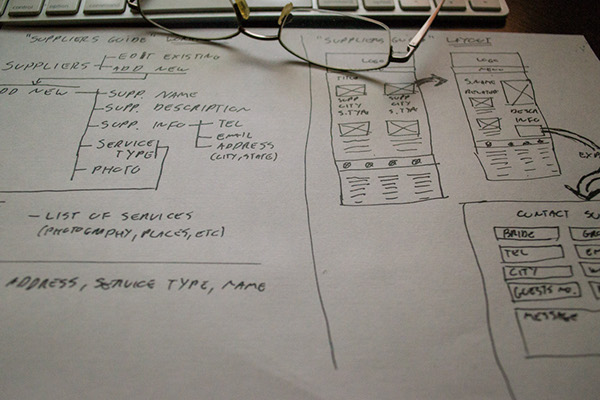 "SUPPLIERS GUIDE"
SUPPLIERS
EDIT EXISTING
ADD NEW
DD NEW
SUPP. NAME
SUPP. DESCRIPTION
SUPP. INFO
TEL
EMAIL
ADDRESS
(CITY, STATE)
SERVICE
TYPE
PHOTO
- LIST OF SERVICES
(PHOTOGRAPHY, PLACES, ETC)
ADDRESS, SERVICE TYPE, NAME
"SUPPLIERS GUIDE" LAYOUT
LOGO
MENU
TITLE
SUPP
CITY
S.TYPE
SUPP
CITY
S.TYPE
LOGO
MENU
DESCR
INFO
EXP
CONTACT SU
BRIDE
GR
TEL
EM
CITY
W
GUESTS NO.
MESSAGE